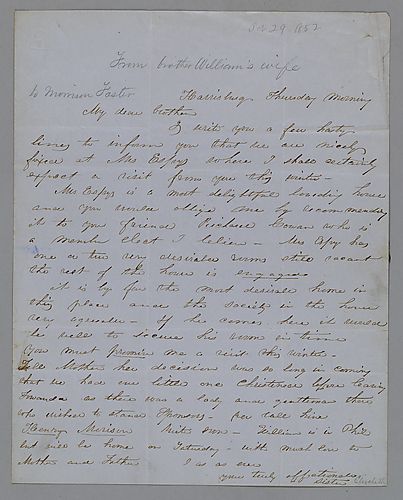 29 1852
From brother William's wife
to Morrison Foster
Harrisburg Thursday Morning
My dear brother
I write you a few hasty
lines to inform you that we are nicely
fixed at Mrs Espys where I shall certainly
expect a visit from you this winter -
Mrs Espys is a most delightful boarding house
and you would oblige me by recommending
it to your friend Cowan who is
a member elect I believe - Mrs Espy has
one or two very desirable rooms still vacant
the rest of the house is engaged
it is by far the most desirable home in
this place and the society in the house
very agreeable - If he comes here it would
be well to secure his room in time
You must promise me a visit this winter -
Tell Mother her decission was so long in coming
that we had our little one Christened before leaving
as there was a lady and gentleman there
who wished to stand Sponsors - we call him
Henry - William is in Phil
but will be home on Saturday - with much love to
Mother and Father I am as ever
yours truly affectionate
sister Elizabeth